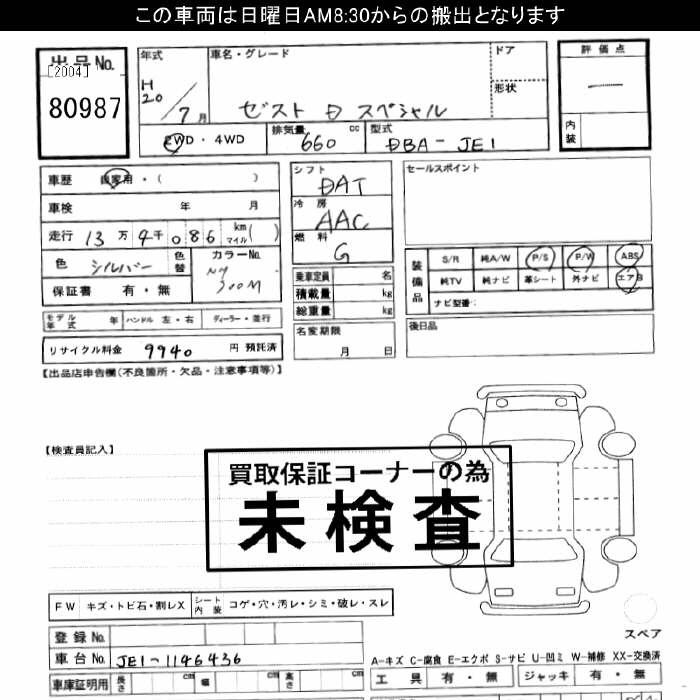 この車両は日曜日AM8:30からの搬出となります
出品No.
[2004]
80987
年式
H20/7月
車名・グレード
ゼスト D スペシャル
ドア
形状
評価点
内装
2WD・4WD
排気量 660 cc
型式 DBA-JE1
車歴 自家用・( )
車検 年 月
走行 13万4千086 km マイル( )
色 シルバー 色替
カラーNo. NH700M
保証書 有・無
シフト DAT
冷房 AAC
燃料 G
乗車定員 名
積載量 kg
総重量 kg
名変期限 月 日
セールスポイント
装備品
S/R 純A/W P/S P/W ABS
純TV 純ナビ 革シート 外ナビ エアB
ナビ型番:
後日品
モデル年式 年 ハンドル 左・右 ディーラー・並行
リサイクル料金 9940 円 預託済
【出品店申告欄(不良箇所・欠品・注意事項等)】
【検査員記入】
買取保証コーナーの為
未検査
FW キズ・トビ石・割レX シート内装 コゲ・穴・汚レ・シミ・破レ・スレ
スペア
登録No.
車台No. JE1-1146436
車庫証明用 長さ cm 幅 cm 高さ cm
A-キズ C-腐食 E-エクボ S-サビ U-凹ミ W-補修 XX-交換済
工具 有・無 ジャッキ 有・無